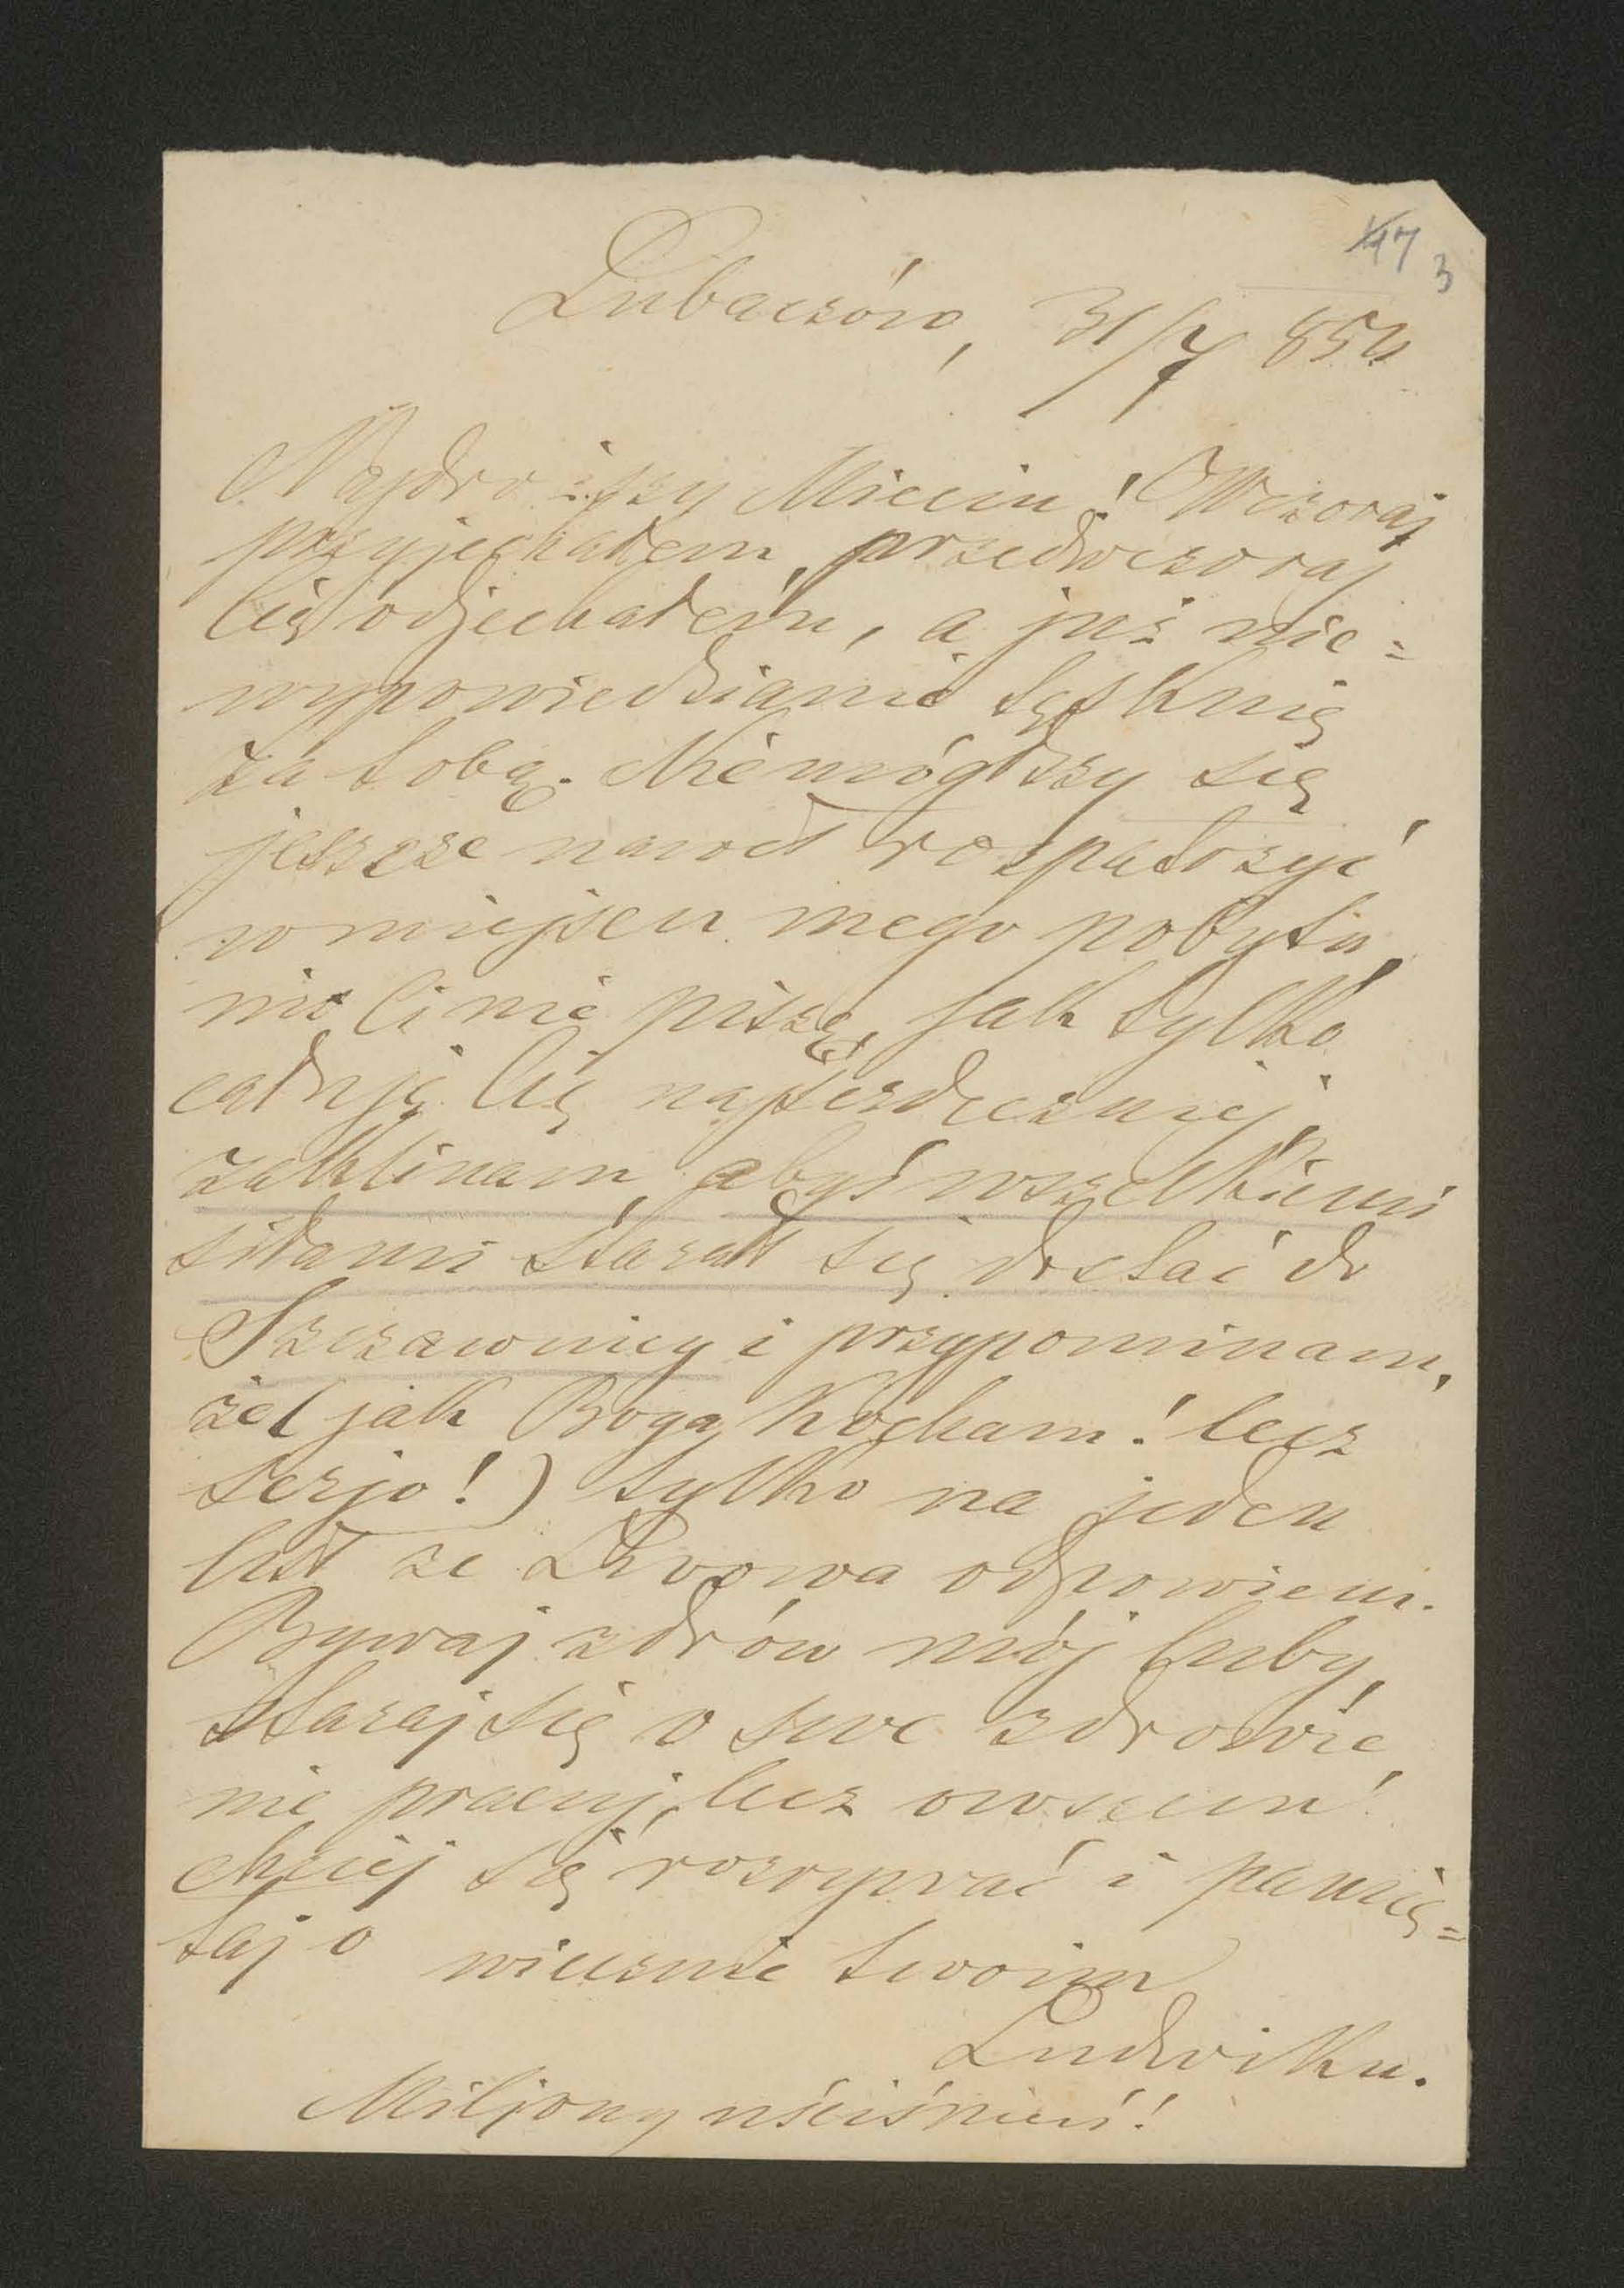 47 3
Lubaczów, 31/7 854
Najdroższy Mieciu! Wczoraj
przyjechałem, przedwczoraj
Cię odjechałem, a już nie=
wypowiedzianie tęsknię
za tobą. Niemógłszy się
jeszcze nawet rozpatrzyć
w miejscu mego pobytu,
nic Ci nie piszę, jak tylko
całuję Cię najserdeczniej,
zaklinam, abyś wszelkiemi
siłami starał się dostać do
Szczawnicy i przypominam,
że (jak Boga kocham! lecz
serjo!) tylko na jeden
list ze Lwowa odpowiem.
Bywaj zdrów mój luby,
staraj się o swe zdrowie,
nie pracuj, lecz owszem
chciej się rozrywać i pamię=
taj o wiecznie twoim
Ludwiku.
Miljony uściśnień!